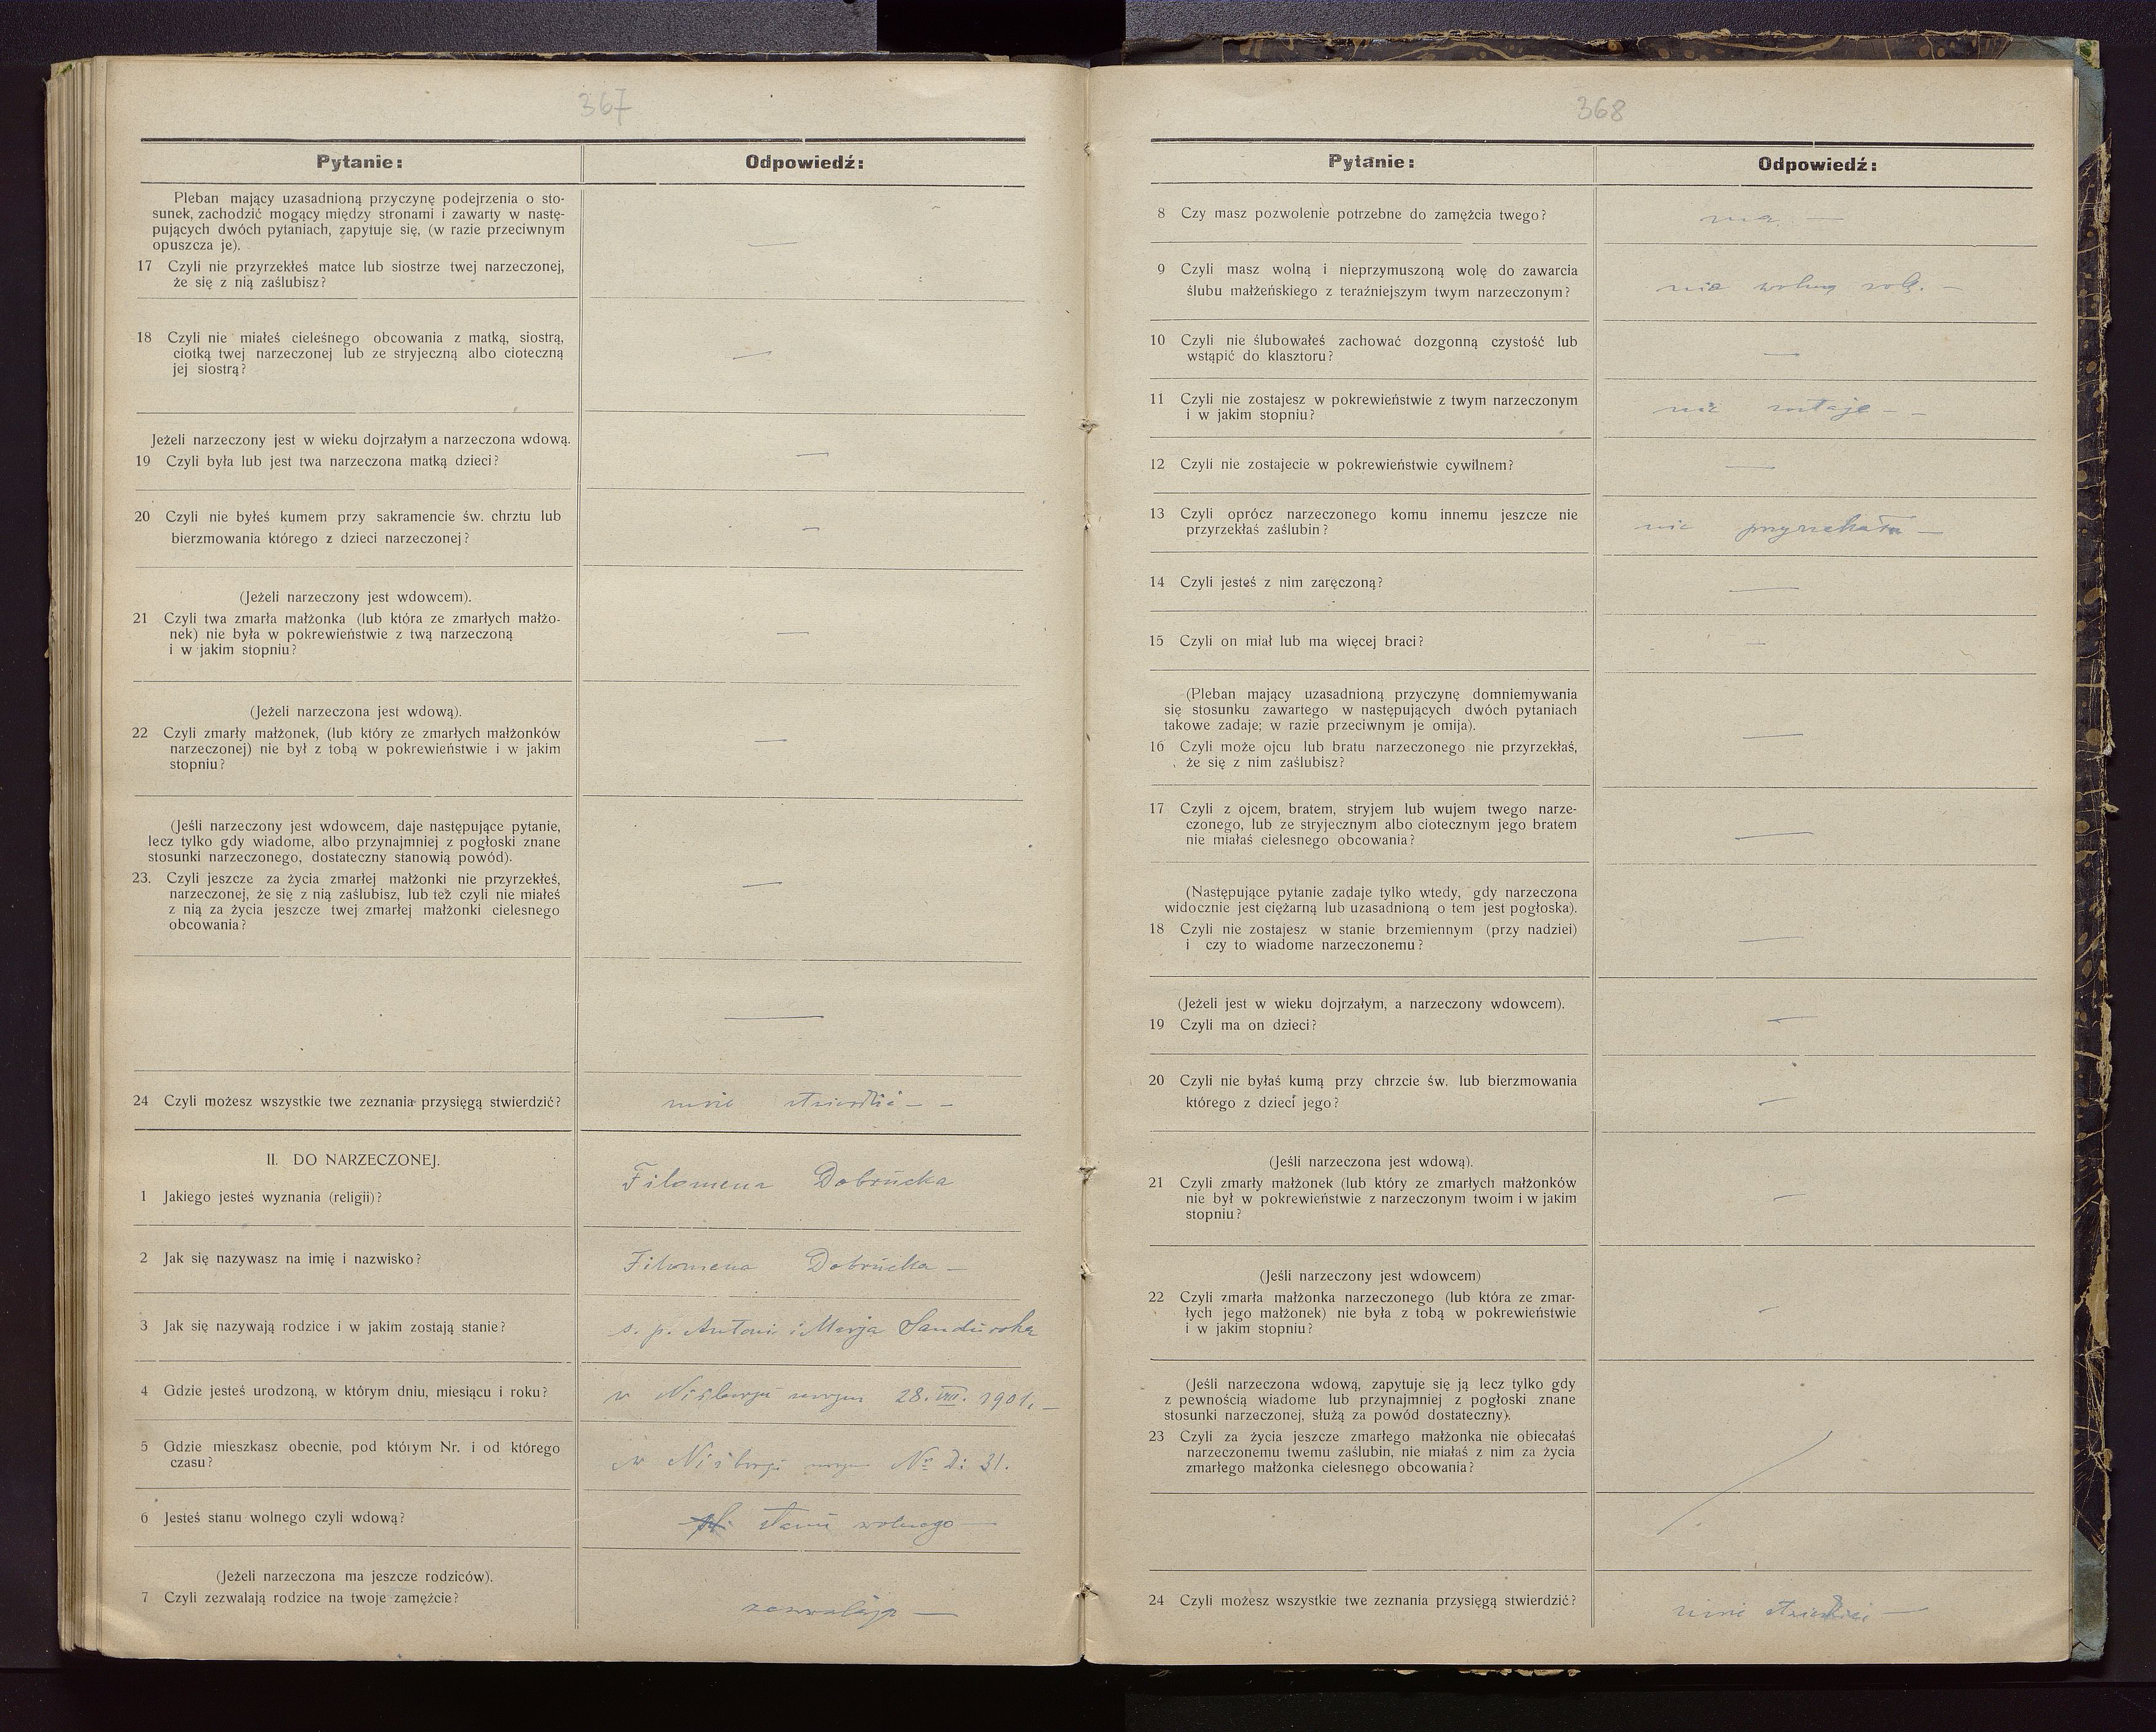 367
Pytanie:
Odpowiedź:
Pleban mający uzasadnioną przyczynę podejrzenia o sto-
sunek, zachodzić mogący między stronami i zawarty w nastę-
pujących dwóch pytaniach, zapytuje się, (w razie przeciwnym
opuszcza je).
—
17 Czyli nie przyrzekłeś matce lub siostrze twej narzeczonej,
że się z nią zaślubisz?
18 Czyli nie miałeś cieleśnego obcowania z matką, siostrą,
ciotką twej narzeczonej lub ze stryjeczną albo cioteczną
jej siostrą?
—
Jeżeli narzeczony jest w wieku dojrzałym a narzeczona wdową.
19 Czyli była lub jest twa narzeczona matką dzieci?
—
20 Czyli nie byłeś kumem przy sakramencie św. chrztu lub
bierzmowania którego z dzieci narzeczonej?
—
(Jeżeli narzeczony jest wdowcem).
21 Czyli twa zmarła małżonka (lub która ze zmarłych małżo-
nek) nie była w pokrewieństwie z twą narzeczoną
i w jakim stopniu?
—
(Jeżeli narzeczona jest wdową).
22 Czyli zmarły małżonek, (lub który ze zmarłych małżonków
narzeczonej) nie był z tobą w pokrewieństwie i w jakim
stopniu?
—
(Jeśli narzeczony jest wdowcem, daje następujące pytanie,
lecz tylko gdy wiadome, albo przynajmniej z pogłoski znane
stosunki narzeczonego, dostateczny stanowią powód).
23. Czyli jeszcze za życia zmarłej małżonki nie przyrzekłeś,
narzeczonej, że się z nią zaślubisz, lub też czyli nie miałeś
z nią za życia jeszcze twej zmarłej małżonki cielesnego
obcowania?
—
—
24 Czyli możesz wszystkie twe zeznania przysięgą stwierdzić?
II. DO NARZECZONEJ.
1 Jakiego jesteś wyznania (religii)?
Filomena Dobrucka
2 Jak się nazywasz na imię i nazwisko?
Filomena Dobrucka —
3 Jak się nazywają rodzice i w jakim zostają stanie?
s. p. Antoni i Marja
4 Gdzie jesteś urodzoną, w którym dniu, miesiącu i roku?
w 28. VIII. 1901. —
5 Gdzie mieszkasz obecnie, pod którym Nr. i od którego
czasu?
w No D: 31.
6 Jesteś stanu wolnego czyli wdową?
stanu wolnego —
(Jeżeli narzeczona ma jeszcze rodziców).
7 Czyli zezwalają rodzice na twoje zamęźcie?
zezwalają —
368
Pytanie:
Odpowiedź:
8 Czy masz pozwolenie potrzebne do zamężcia twego?
ma —
9 Czyli masz wolną i nieprzymuszoną wolę do zawarcia
ślubu małżeńskiego z teraźniejszym twym narzeczonym?
wolną wolę. —
10 Czyli nie ślubowałeś zachować dozgonną czystość lub
wstąpić do klasztoru?
—
11 Czyli nie zostajesz w pokrewieństwie z twym narzeczonym
i w jakim stopniu?
nie zostaje - -
12 Czyli nie zostajecie w pokrewieństwie cywilnem?
—
13 Czyli oprócz narzeczonego komu innemu jeszcze nie
przyrzekłaś zaślubin?
nie przyrzekała —
14 Czyli jesteś z nim zaręczoną?
—
15 Czyli on miał lub ma więcej braci?
—
(Pleban mający uzasadnioną przyczynę domniemywania
się stosunku zawartego w następujących dwóch pytaniach
takowe zadaje; w razie przeciwnym je omija).
16 Czyli może ojcu lub bratu narzeczonego nie przyrzekłaś,
że się z nim zaślubisz?
—
17 Czyli z ojcem, bratem, stryjem lub wujem twego narze-
czonego, lub ze stryjecznym albo ciotecznym jego bratem
nie miałaś cielesnego obcowania?
—
(Następujące pytanie zadaje tylko wtedy, gdy narzeczona
widocznie jest ciężarną lub uzasadnioną o tem jest pogłoska).
18 Czyli nie zostajesz w stanie brzemiennym (przy nadziei)
i czy to wiadome narzeczonemu?
—
(Jeżeli jest w wieku dojrzałym, a narzeczony wdowcem).
19 Czyli ma on dzieci?
—
20 Czyli nie byłaś kumą przy chrzcie św. lub bierzmowania
którego z dzieci jego?
—
(Jeśli narzeczona jest wdową).
21 Czyli zmarły małżonek (lub który ze zmarłych małżonków
nie był w pokrewieństwie z narzeczonym twoim i w jakim
stopniu?
—
(Jeśli narzeczony jest wdowcem)
22 Czyli zmarła małżonka narzeczonego (lub która ze zmar-
łych jego małżonek) nie była z tobą w pokrewieństwie
i w jakim stopniu?
—
(Jeśli narzeczona wdową, zapytuje się ją lecz tylko gdy
z pewnością wiadome lub przynajmniej z pogłoski znane
stosunki narzeczonej, służą za powód dostateczny).
23 Czyli za życia jeszcze zmarłego małżonka nie obiecałaś
narzeczonemu twemu zaślubin, nie miałaś z nim za życia
zmarłego małżonka cielesnego obcowania?
24 Czyli możesz wszystkie twe zeznania przysięgą stwierdzić?